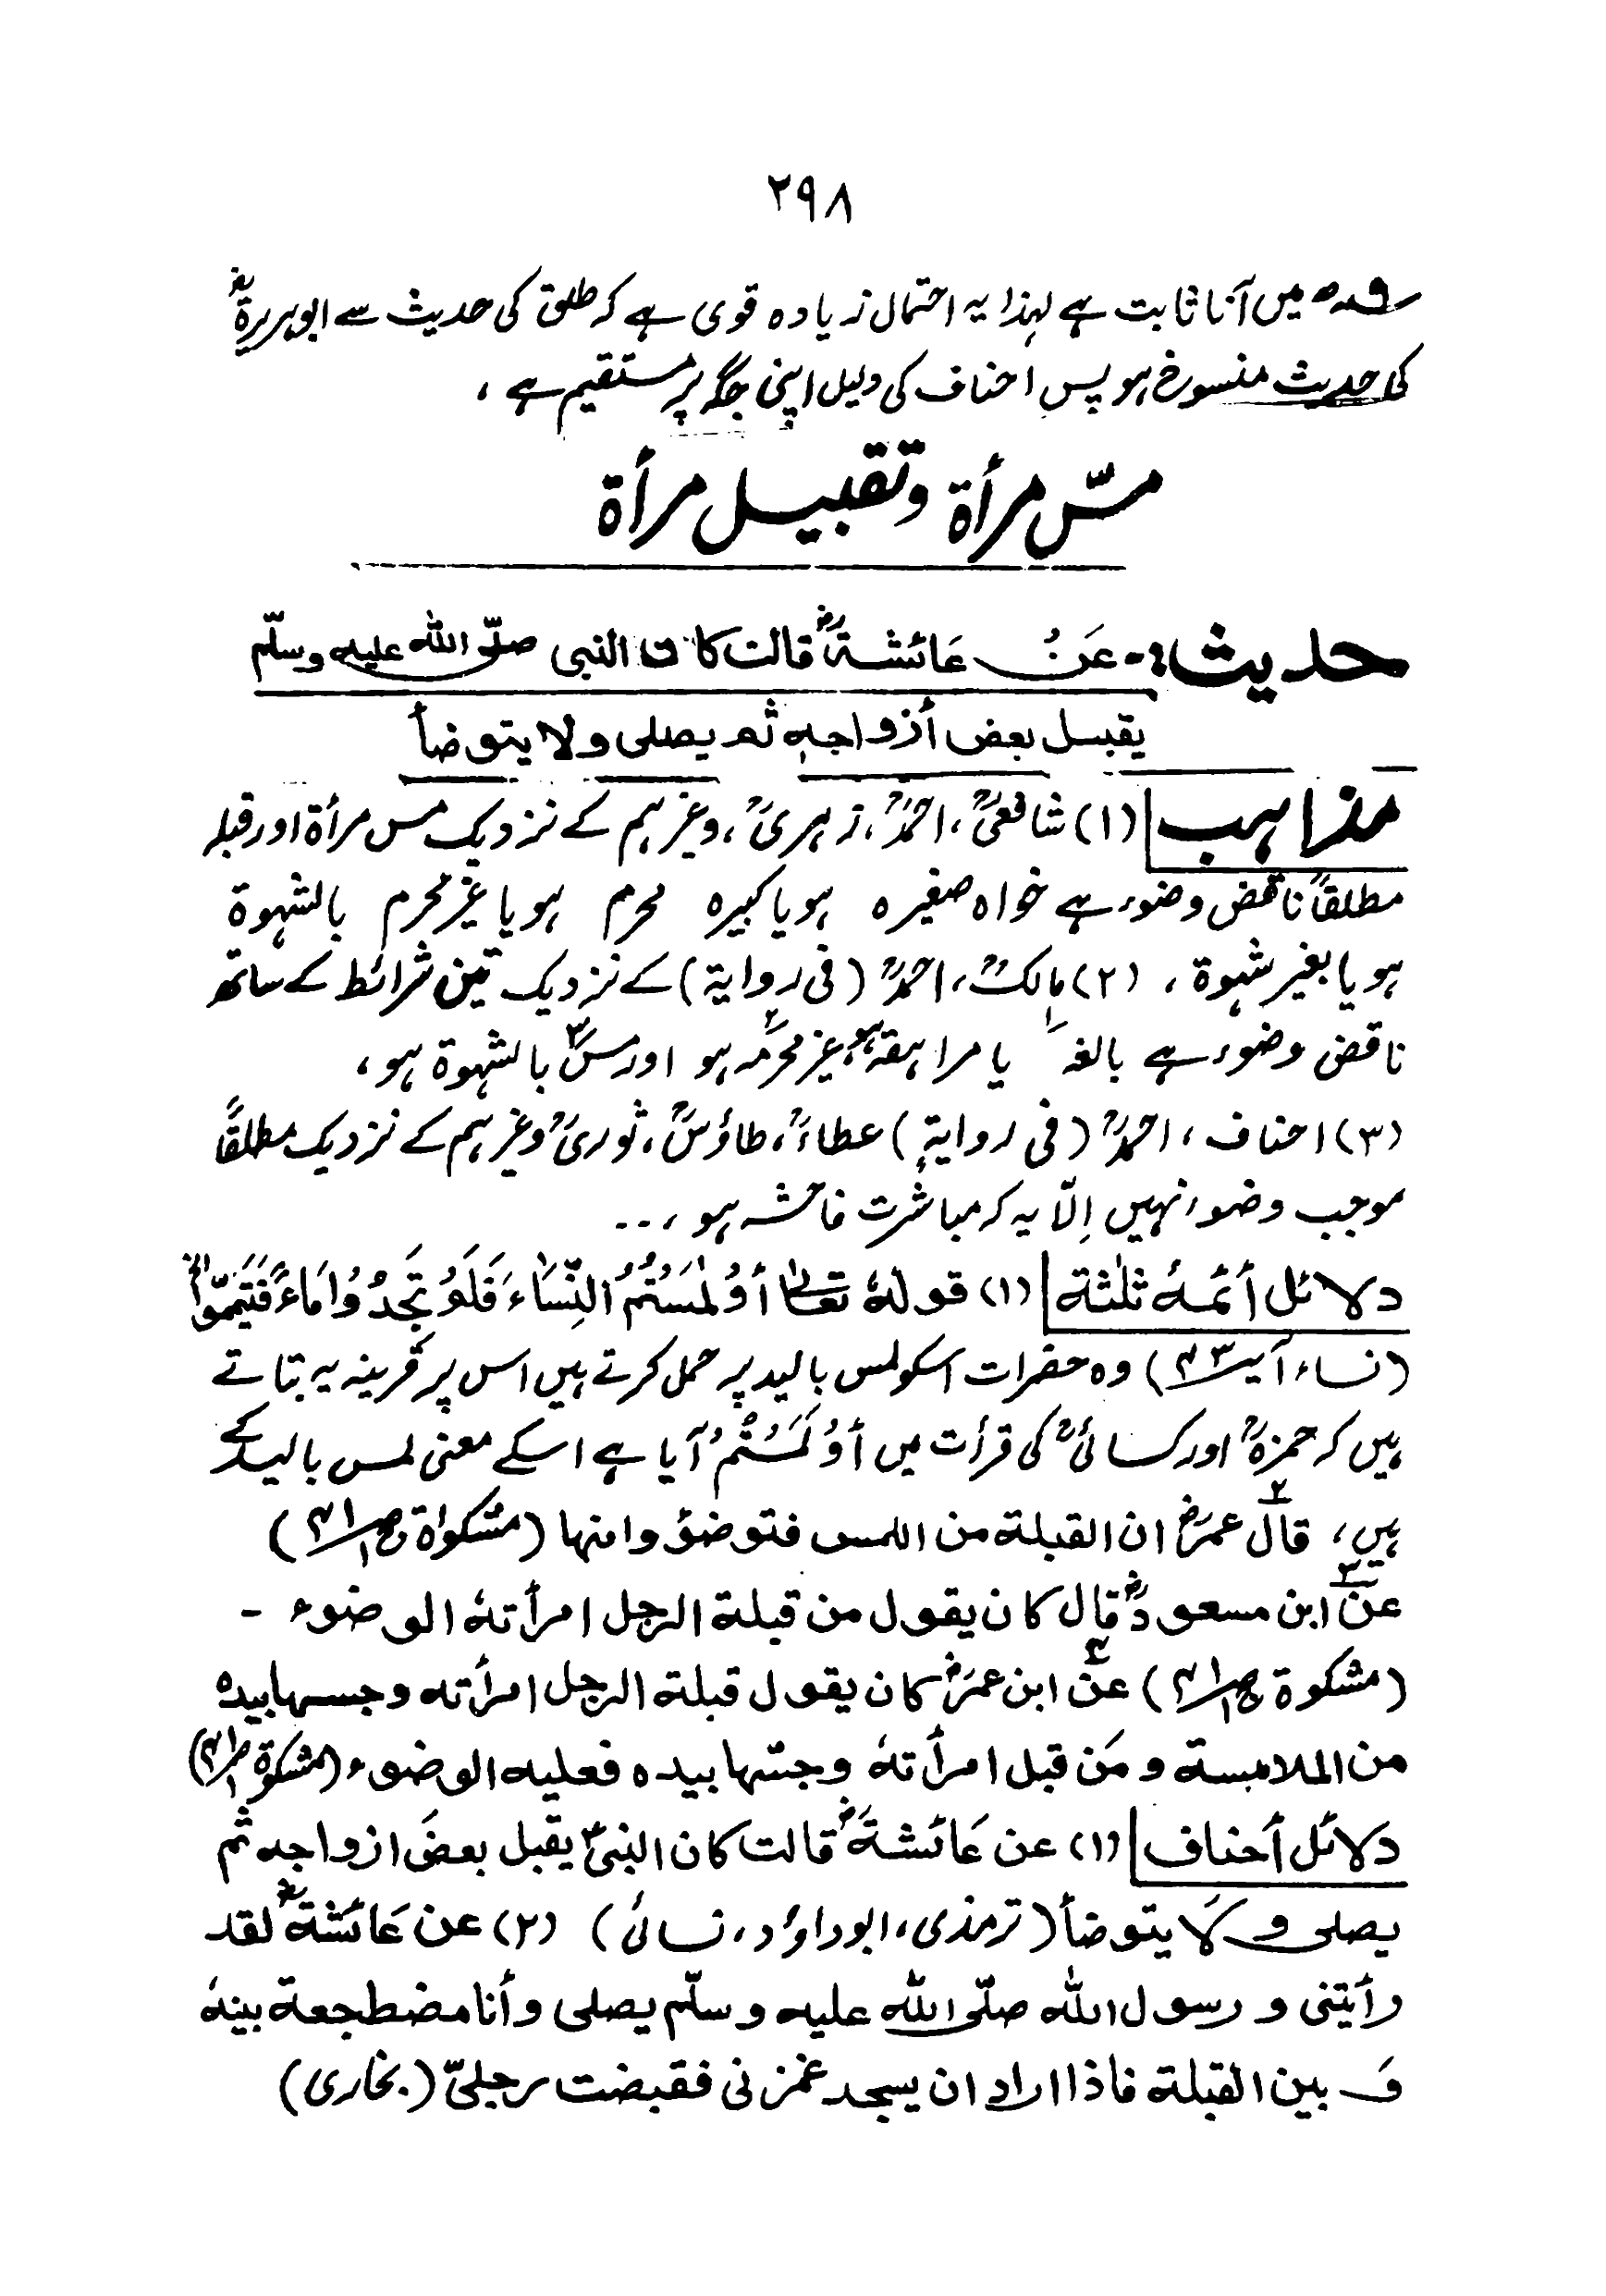 ۲۹۸
۹ھ میں آنا ثابت ہے لہذا یہ احتمال زیادہ قوی ہے کہ طلق کی حدیث سے ابوہریرۃؓ
کی حدیث منسوخ ہو پس احناف کی دلیل اپنی جگہ پر مستقیم ہے ،
مسّ مرأۃ وتقبیل مرأۃ
حدیث:- عَنْ عَائشۃؓ قالت کان النبی صلّی اللہ علیہ وسلّم
یقبل بعض أزواجہٖ ثم یصلی ولا یتوضأ
مذاہب (۱) شافعیؒ، احمدؒ، زہریؒ، وغیرہم کے نزدیک مس مرأۃ اور قبلہ
مطلقاً ناقض وضوء ہے خواہ صغیرہ ہو یا کبیرہ محرم ہو یا غیر محرم بالشہوۃ
ہو یا بغیر شہوۃ ، (۲) مالکؒ، احمدؒ (فی روایۃ) کے نزدیک تین شرائط کے ساتھ
ناقض وضوء ہے بالغہ یا مراہقہ ہو، غیر محرمہ ہو اور مس بالشہوۃ ہو ،
(۳) احناف ، احمدؒ (فی روایۃٍ) عطاءؒ، طاؤسؒ، ثوریؒ وغیرہم کے نزدیک مطلقًا
موجب وضوء نہیں اِلّا یہ کہ مباشرت فاحشہ ہو ، ۔۔
دلائل أئمۂ ثلٰثۃ (۱) قولہٗ تعالیٰ أَوْ لٰمَسْتُمُ النِّسَاءَ فَلَمْ تَجِدُوْا مَاءً فَتَيَمَّمُوْا الخ
(نساء آیت ۴۳) وہ حضرات اسکو لمس بالید پر حمل کرتے ہیں اس پر قرینہ یہ بتاتے
ہیں کہ حمزہؒ اور کسائیؒ کی قرأت میں أَوْ لَمَسْتُمْ آیا ہے اسکے معنی لمس بالید کے
ہیں ، ۲ قال عمرؓ ان القبلۃ من اللمس فتوضؤ وا منہا (مشکوٰۃ ج۱ ص۴۱)
۳ عن ابن مسعودؓ قال کان یقول من قبلۃ الرجل امرأتہٗ الوضوء -
(مشکوۃ ج۱ ص۴۱) ۴ عن ابن عمرؓ کان یقول قبلۃ الرجل امرأتہ وجسہا بیدہ
من الملامسۃ و مَن قبل امرأتہٗ وجسّہا بیدہ فعلیہ الوضوء (مشکوۃ ص۴۱ ج۱)
دلائل أحناف (۱) عن عَائشۃؓ قالت کان النبیؐ یقبل بعضَ ازواجہ ثم
یصلی وَلَا یتوضأ (ترمذی، ابوداؤد، نسائی) (۲) عن عَائشۃؓ لقد
رأیتنی و رسول اللہ صلّی اللہ علیہ وسلّم یصلی وأنا مضطجعۃ بینہٗ
وَ بین القبلۃ فاذا اراد ان یسجد غمزنی فقبضت رجلیّ (بخاری)